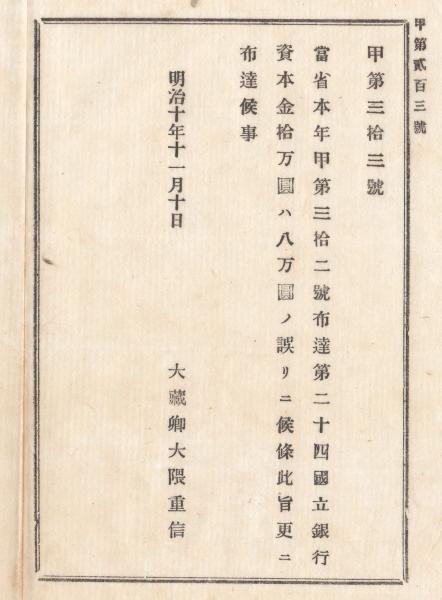 甲第貳百三號
甲第三拾三號
當省本年甲第三拾二號布達第二十四國立銀行
資本金拾万圓ハ八万圓ノ誤リニ候條此旨更ニ
布達候事
明治十年十一月十日
大藏卿大隈重信